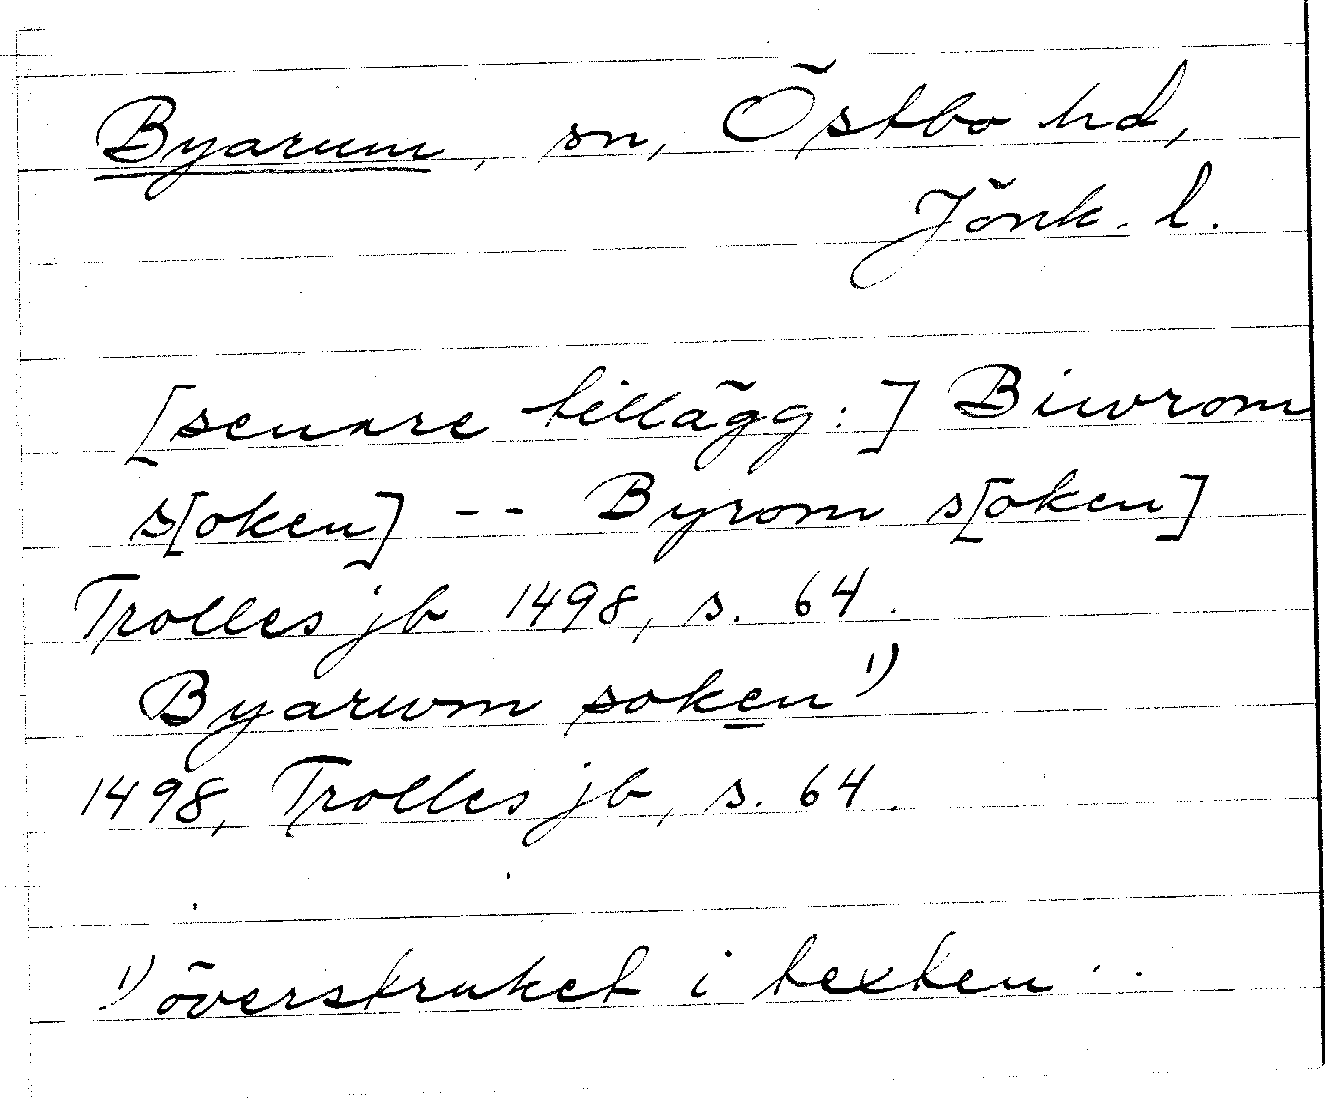 Byarum, sn, Östbo hd,
Jönk. l.
[senare tillägg:] Biwrom
s[oken] -- Byrom s[oken]
Trolles jb 1498, s. 64.
Byarwm soken 1)
1498, Trolles jb, s. 64.
1) överstruket i texten.